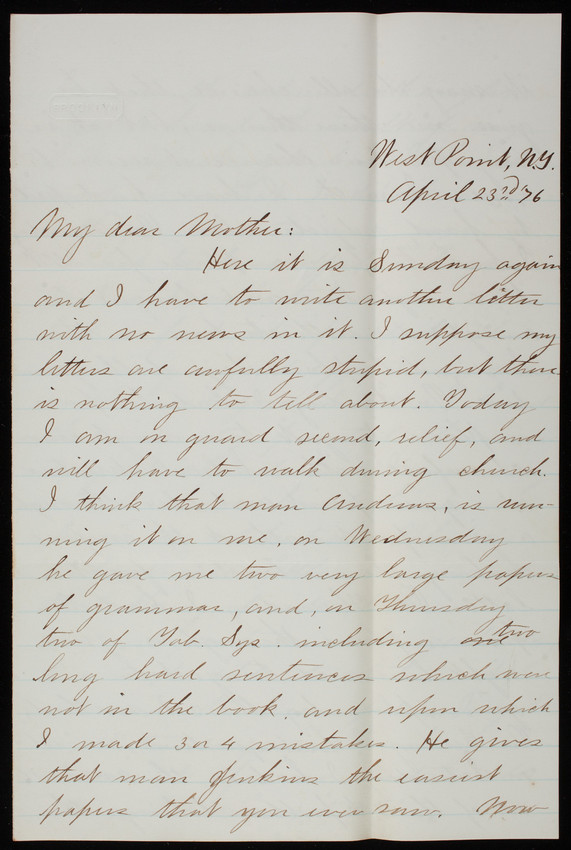 West Point, N.Y.
April 23rd '76
My dear Mother:
Here it is Sunday again
and I have to write another letter
with no news in it. I suppose my
letters are awfully stupid, but there
is nothing to tell about. Today
I am on guard second, relief, and
will have to walk during church.
I think that man Andrews, is run-
ning it on me, on Wednesday
he gave me two very large papers
of grammar, and, on Thursday
two of Tab. Sys. including two
long hard sentences which were
not in the book. and upon which
I made 3 or 4 mistakes. He gives
that man Jenkins the easiest
papers that you ever saw. Now